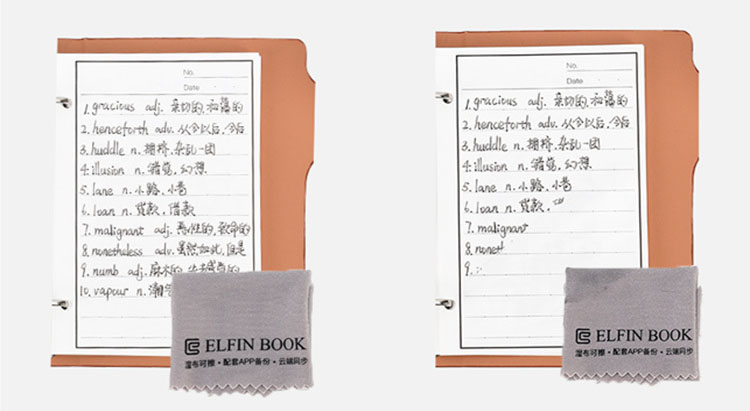 No.
Date
1. gracious adj. 亲切的,和蔼的
2. henceforth adv. 从今以后,今后
3. huddle n. 拥挤,杂乱一团
4. illusion n. 错觉,幻想
5. lane n. 小路、小巷
6. loan n. 贷款,借款
7. malignant adj. 恶性的,致命的
8. nonetheless adv. 虽然如此,但是
9. numb adj. 麻木的,
10. vapour n. 潮气
ELFIN BOOK
湿布可擦·配套APP备份·云端同步
No.
Date
1. gracious adj. 亲切的,和蔼的
2. henceforth adv. 从今以后,今后
3. huddle n. 拥挤,杂乱一团
4. illusion n. 错觉,幻想
5. lane n. 小路、小巷
6. loan n. 贷款,
7. malignant
8. nonet
9.
ELFIN BOOK
湿布可擦·配套APP备份·云端同步